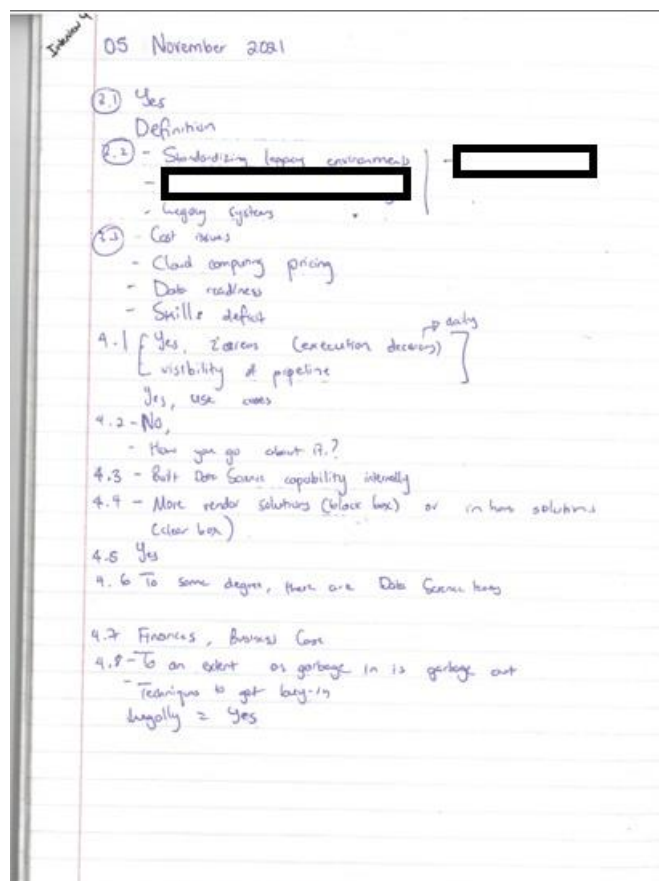 Interview 4
05 November 2021
3.1 Yes
Definition
3.2 - Standardizing legacy environments -
-
- Legacy systems
3.3 - Cost issues
- Cloud computing pricing
- Data readiness
- Skills deficit
4.1 Yes, (execution decisions) → early
visibility of pipeline
Yes, use cases
4.2 - No,
- How you go about it?
4.3 - Built Data Science capability internally
4.4 - More vendor solutions (black box) or in house solutions
(clear box)
4.5 Yes
4.6 To some degree, there are Data Science
4.7 Finances, Business Case
4.8 - To an extent as garbage in is garbage out
- Techniques to get buy-in
Legally = Yes